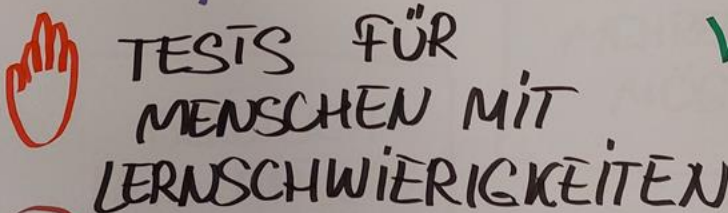 TESTS FÜR
MENSCHEN MIT
LERNSCHWIERIGKEITEN